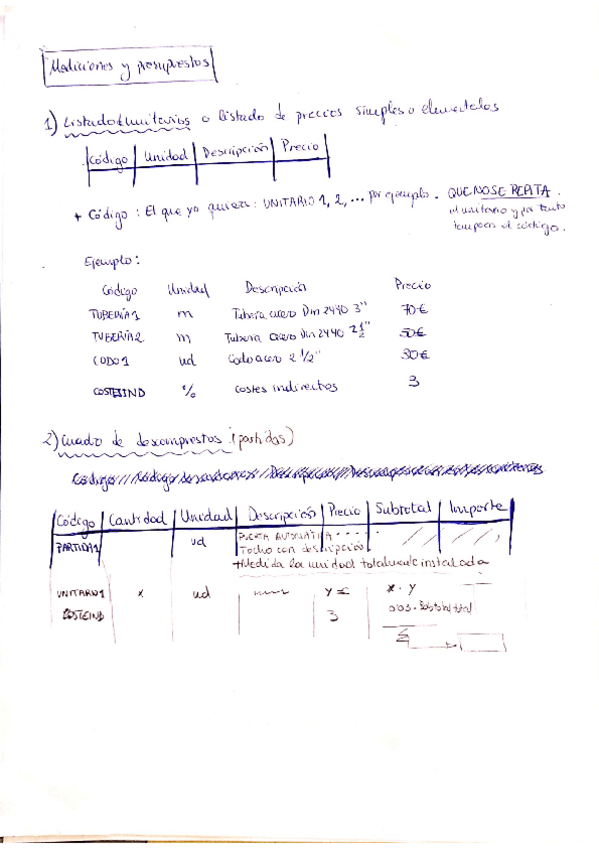 Mediciones y presupuestos
1) Listado de unitarios o listado de precios simples o elementales
Código | Unidad | Descripción | Precio
+ Código: El que yo quiera: UNITARIO 1, 2, ... por ejemplo. QUE NO SE REPITA.
el unitario y por tanto
tampoco el código.
Ejemplo:
Código Unidad Descripción Precio
TUBERÍA1 m Tubería acero Din 2440 3" 70€
TUBERÍA2 m Tubería acero Din 2440 2 1/2" 50€
CODO1 ud Codo acero 2 1/2" 30€
COSTEIND % costes indirectos 3
2) Cuadro de descompuestos (partidas)
Código | Cantidad | Unidad | Descripción | Precio | Subtotal | Importe
PARTIDA1 ud PUERTA AUTOMÁTICA
Tocho con descripción
+Medida la unidad totalmente instalada
UNITARIO1 x ud y € x·y
COSTEIND 3 0'03·Subtotal total
Σ